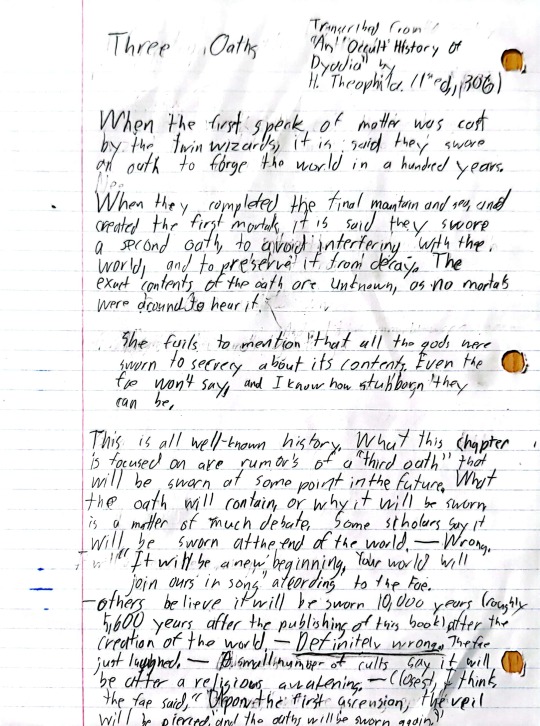 Three Oaths
Transcribed from
"An Occult History of
Dyadia" by
H. Theophild. (1st ed, 1306)
When the first speck of matter was cast
by the twin wizards, it is said they swore
an oath to forge the world in a hundred years.
When they completed the final mountain and sea, and
created the first mortals, it is said they swore
a second oath, to avoid interfering with the
world, and to preserve it from decay. The
exact contents of the oath are unknown, as no mortals
were around to hear it.
She fails to mention that all the gods were
sworn to secrecy about its contents. Even the
fae won't say, and I know how stubborn they
can be.
This is all well-known history. What this chapter
is focused on are rumors of a "third oath" that
will be sworn at some point in the future. What
the oath will contain, or why it will be sworn
is a matter of much debate. Some scholars say it
will be sworn at the end of the world. — Wrong.
"It will be a new beginning. Your world will
join ours in song" according to the Fae.
— others believe it will be sworn 10,000 years (roughly
5,600 years after the publishing of this book) after the
creation of the world — Definitely wrong. The fae
just laughed. — A small number of cults say it will
be after a religious awakening. — Closest, I think
the fae said, "Upon the first ascension, the veil
will be pierced, and the oaths will be sworn again."